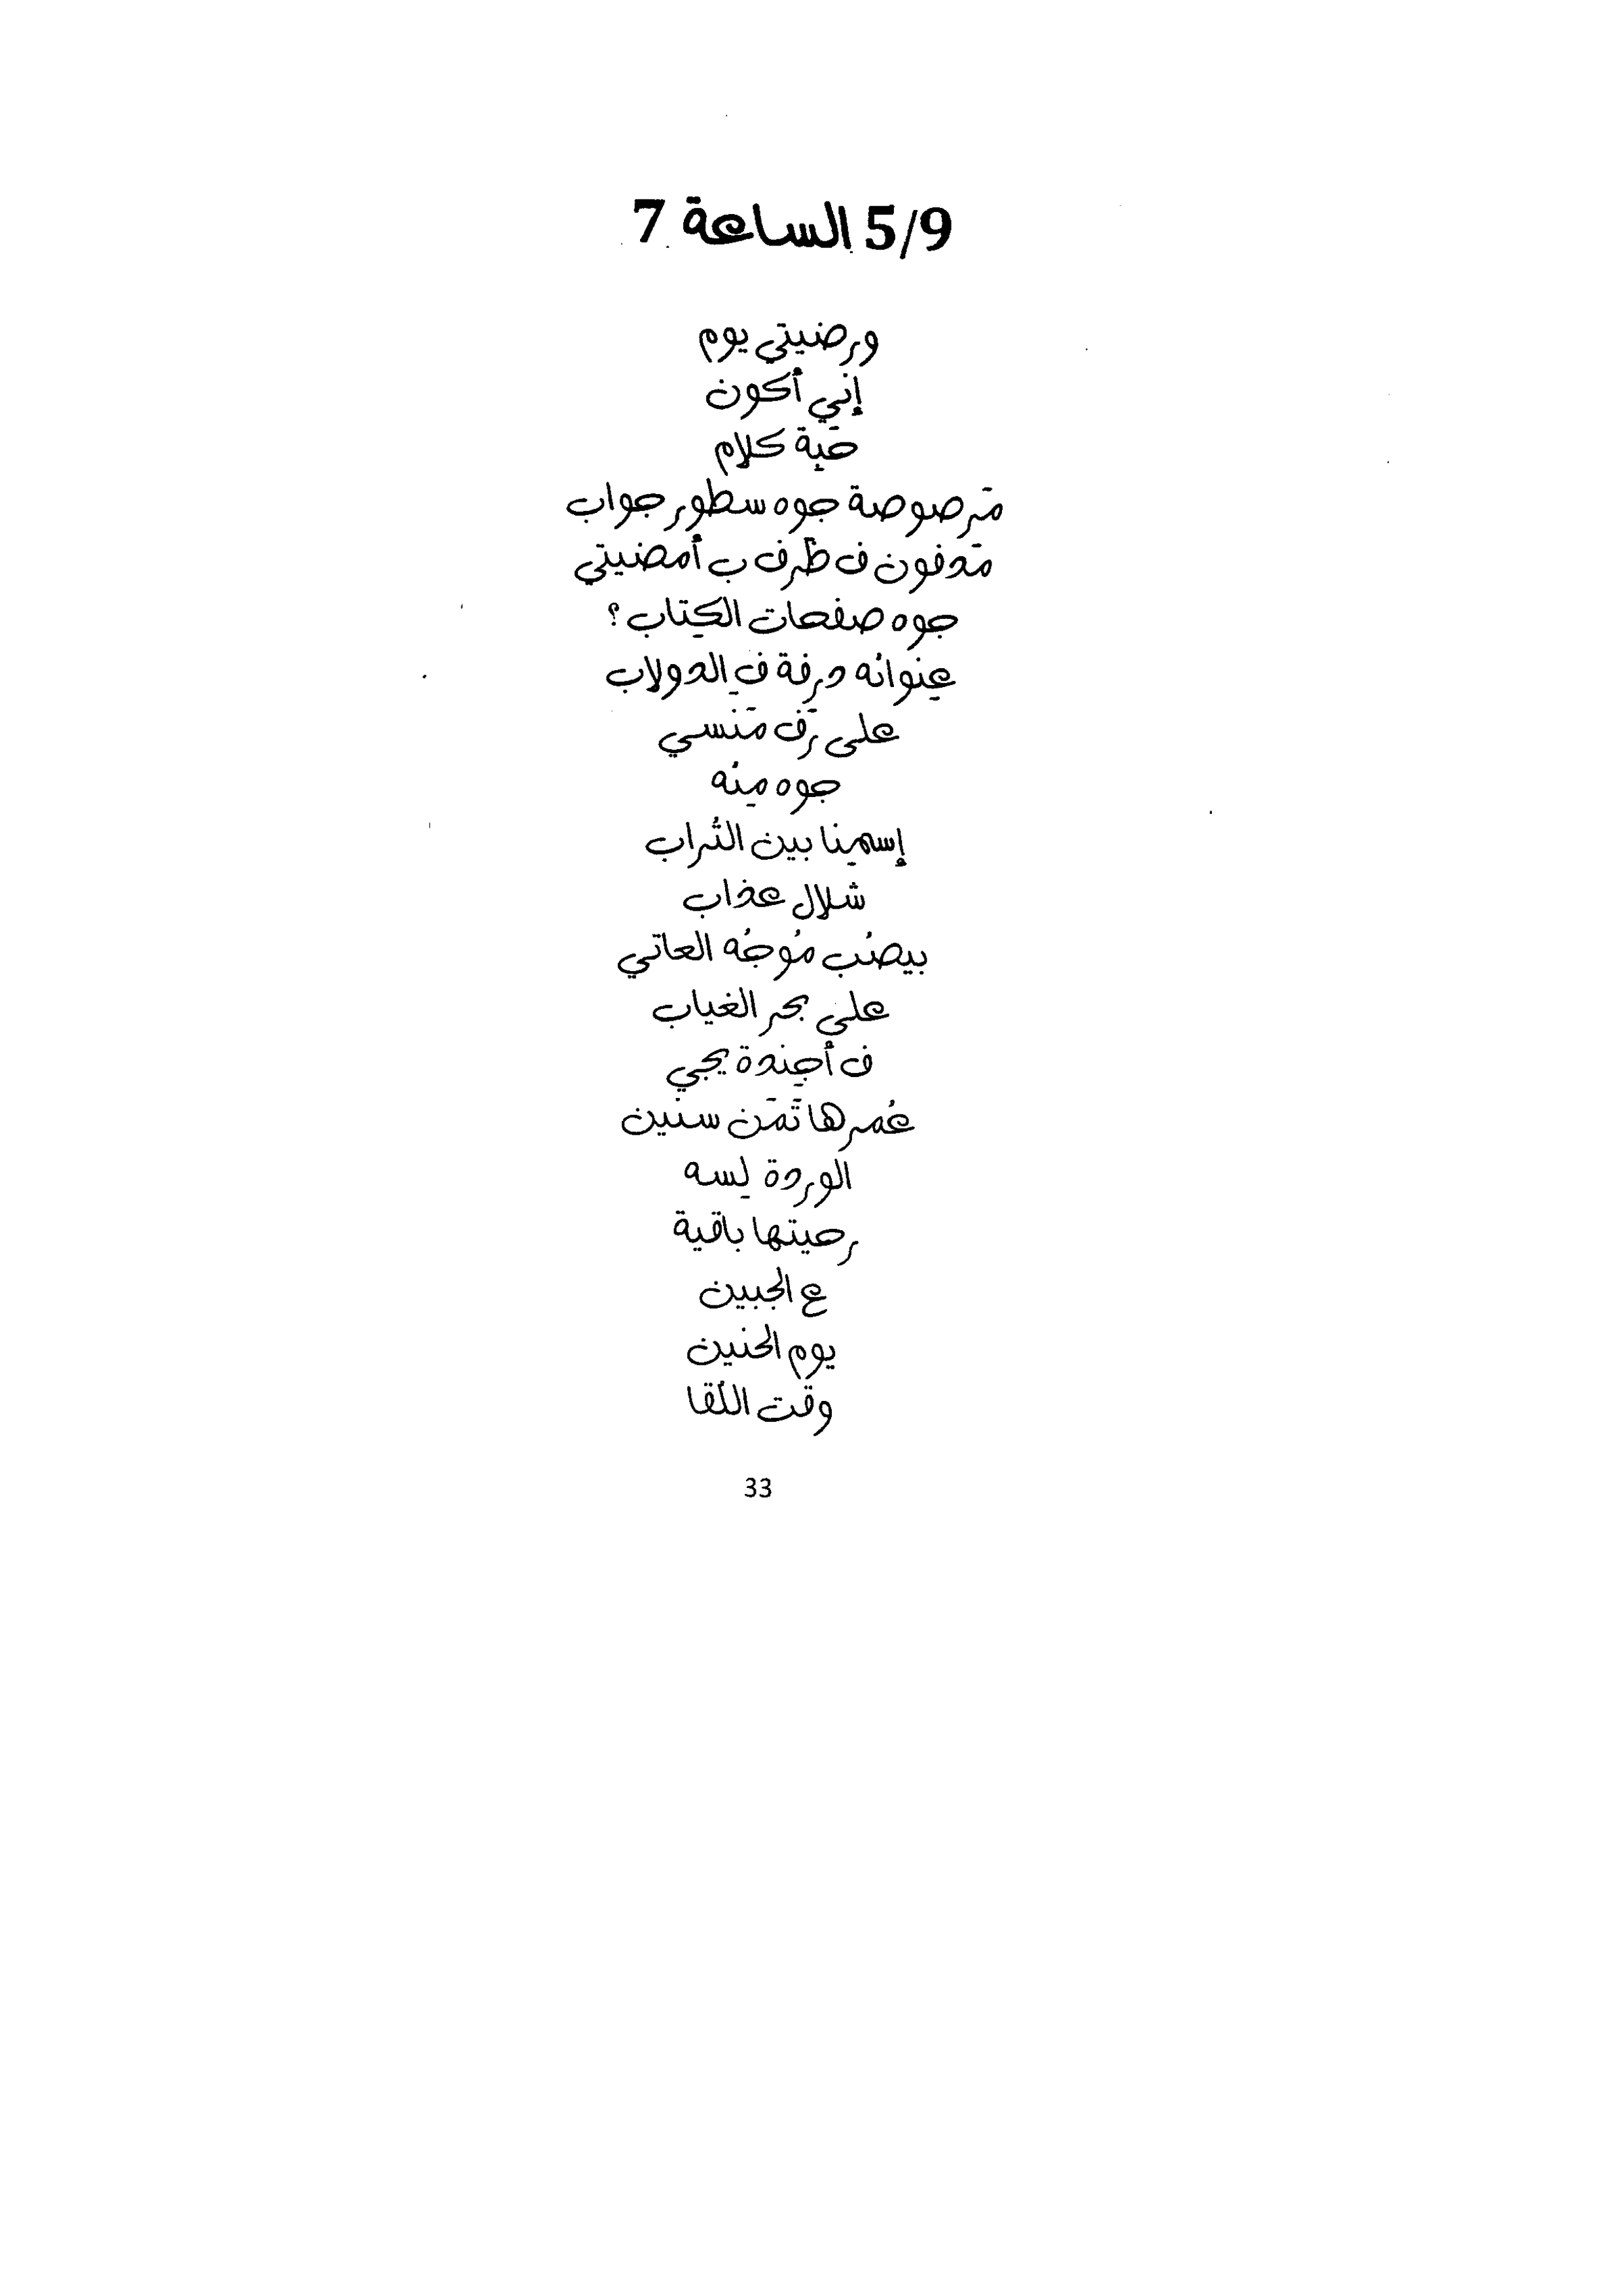 5/9 الساعة 7
ورضيتي يوم
إني أكون
حَبِة كلام
مَرصوصة جوه سطور جواب
مَدفون ف ظرف ب أمضيتي
جوه صفحات الكِتاب ؟
عِنوانُه درفة فِ الدولاب
على رَف مَنسي
جوه مِنُه
إسمِنا بين التُراب
شلال عذاب
بيصُب مُوجُه العاتي
على بحر الغياب
ف أجِندة يجي
عُمرها تَمَن سنين
الوردة لِسه
رحيتها باقية
ع الجبين
يوم الحنين
وقت اللُقا
33